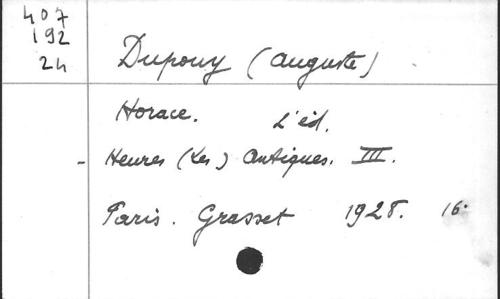 407
192
24
Dupouy (Auguste)
Horace. 2'éd.
- Heures (Les) antiques. III.
Paris. Grasset 1928. 16.